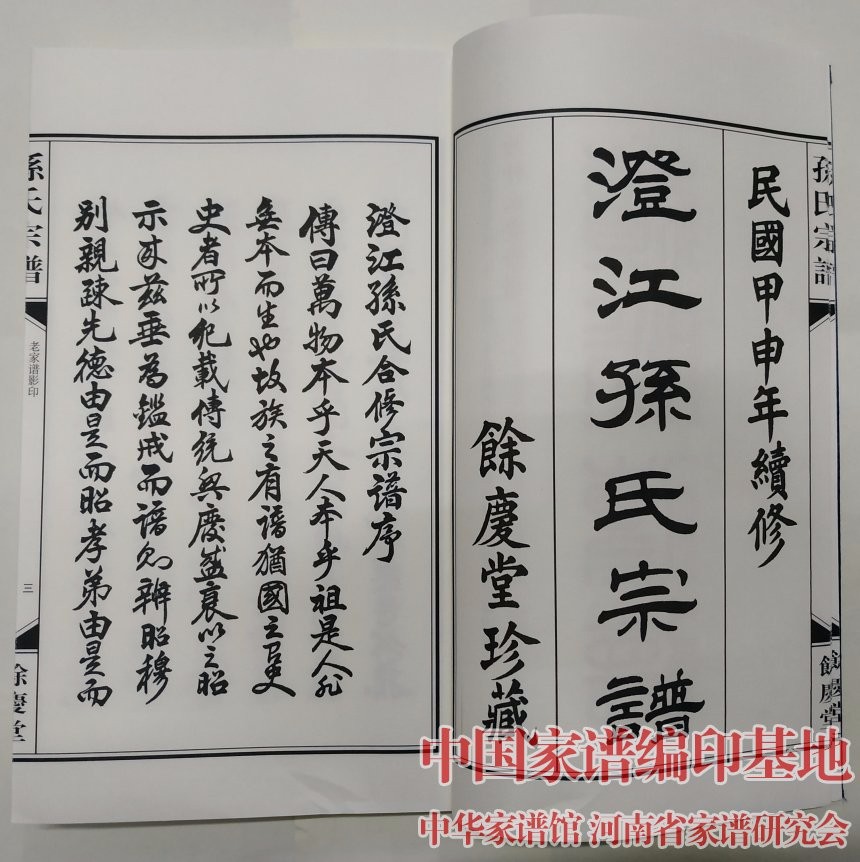 民國甲申年續修
澄江孫氏宗譜
餘慶堂珍藏
孫氏宗譜
餘慶堂
澄江孫氏合修宗譜序
傳曰萬物本乎天人本乎祖是人非
無本而生也故族之有譜猶國之有史
史者所以紀載傳統興廢盛衰以之昭
示来兹垂為鑑戒而譜則辨昭穆
别親疎先德由是而昭孝弟由是而
孫氏宗譜
老家谱影印
三
餘慶堂
中国家谱编印基地
中华家谱馆 河南省家谱研究会